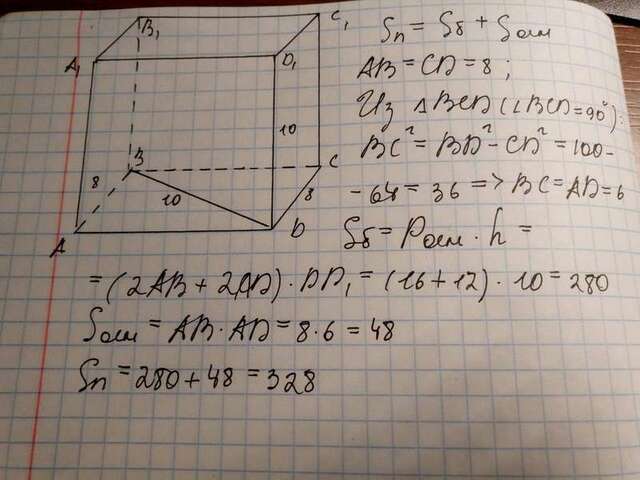 B₁
C₁
A₁
D₁
10
B
C
8
10
8
A
D
Sп = Sб + Sосн
AB = CD = 8 ;
Из △BCD (∠BCD = 90°):
BC² = BD² - CD² = 100 -
- 64 = 36 => BC = AD = 6
Sб = Pосн · h =
= (2AB + 2AD) · DD₁ = (16 + 12) · 10 = 280
Sосн = AB · AD = 8 · 6 = 48
Sп = 280 + 48 = 328